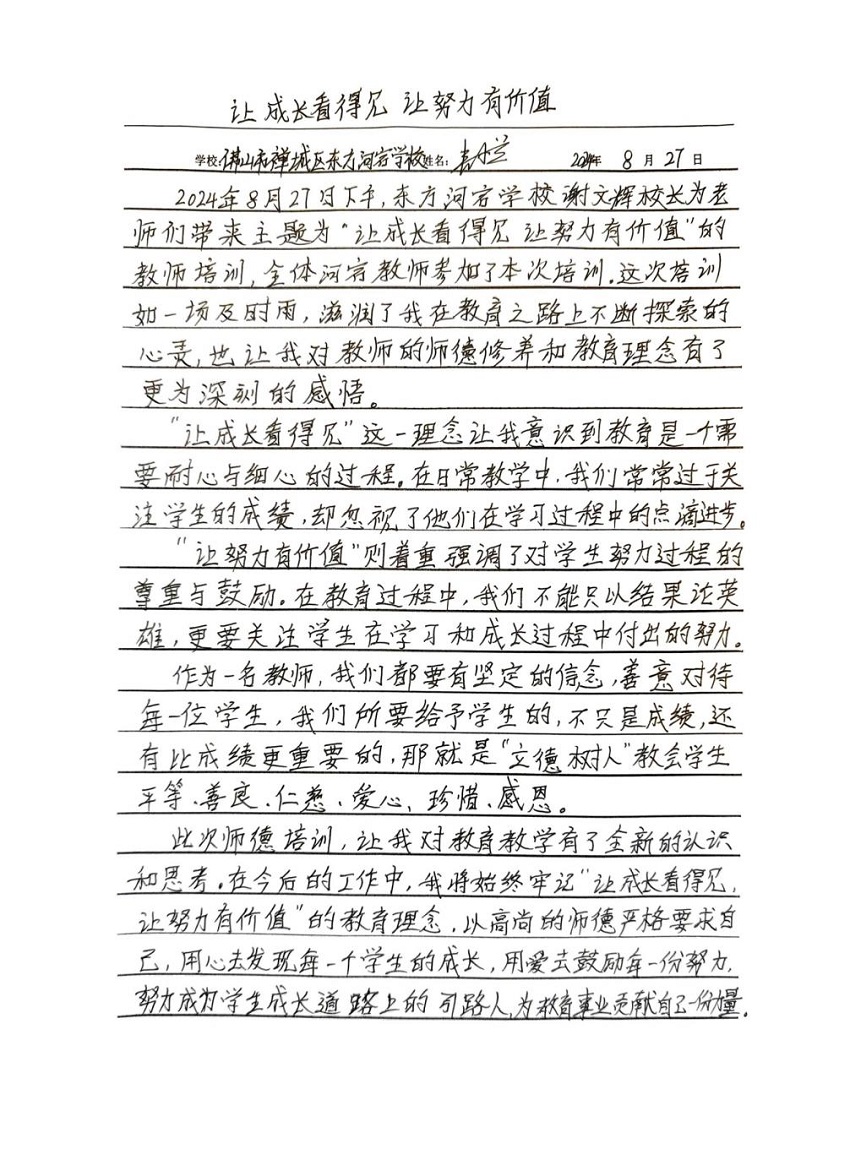 让成长看得见 让努力有价值
学校:佛山市禅城区东方河宕学校 姓名: 2024年 8 月 27 日
2024年8月27日下午,东方河宕学校谢文辉校长为老
师们带来主题为“让成长看得见 让努力有价值”的
教师培训,全体河宕教师参加了本次培训。这次培训
如一场及时雨,滋润了我在教育之路上不断探索的
心灵,也让我对教师的师德修养和教育理念有了
更为深刻的感悟。
“让成长看得见”这一理念让我意识到教育是一个需
要耐心与细心的过程。在日常教学中,我们常常过于关
注学生的成绩,却忽视了他们在学习过程中的点滴进步。
“让努力有价值”则着重强调了对学生努力过程的
尊重与鼓励。在教育过程中,我们不能只以结果论英
雄,更要关注学生在学习和成长过程中付出的努力。
作为一名教师,我们都要有坚定的信念,善意对待
每一位学生,我们所要给予学生的,不只是成绩,还
有比成绩更重要的,那就是“立德树人”教会学生
平等、善良、仁慈、爱心、珍惜、感恩。
此次师德培训,让我对教育教学有了全新的认识
和思考。在今后的工作中,我将始终牢记“让成长看得见,
让努力有价值”的教育理念,以高尚的师德严格要求自
己,用心去发现每一个学生的成长,用爱去鼓励每一份努力,
努力成为学生成长道路上的引路人,为教育事业贡献自己一份力量。